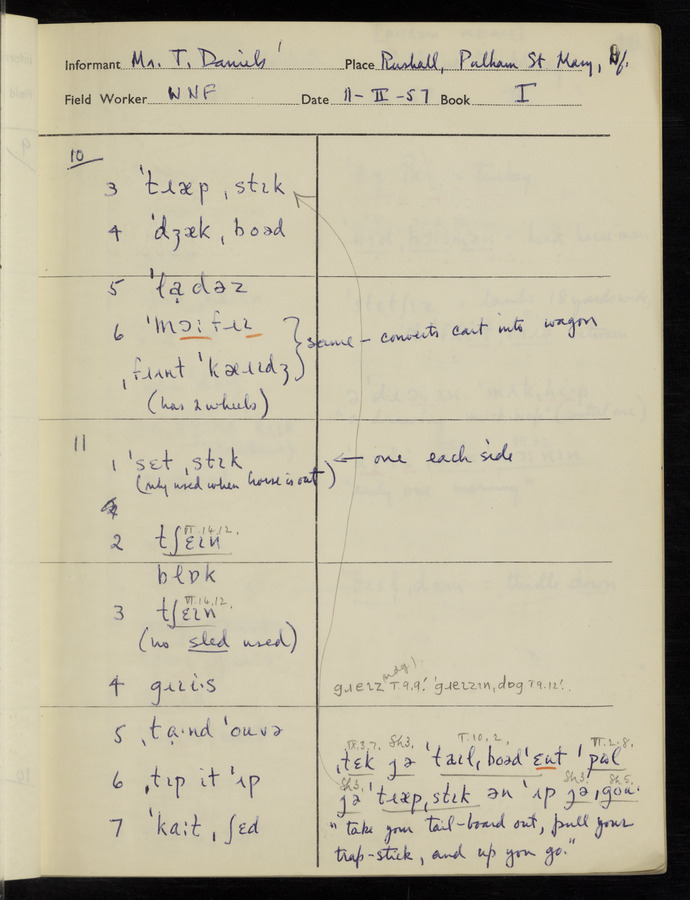 Informant Mr. T. Daniels Place Rushall, Pulham St Mary, Nf.
Field Worker WNF Date 11-II-57 Book I
10
3 ˈtɹæp ˌstɪk
4 ˈdʒæk ˌboəd
5 ˈlądəz
6 ˈmɔːfɹɪ
ˌfɹʌnt ˈkæɹɪdʒ
(has 2 wheels)
same - converts cart into wagon
11
1 ˈsɛt ˌstɪk ← one each side
(only used when horse is out)
2 tʃɛɪn VI.14.12.
blɒk
3 tʃɛɪn VI.14.12.
(no sled used)
4 gɹɪiˑs
gɹɛɪz T.9.9! ˈgɹɛɪzɪn, dog T9.12!.
5 ˌtąˑnd ˈouvə
6 ˌtɪp it ˈʌp
7 ˈkaːt ˌʃɛd
IX.3.7. Sh3. T.10.2. VI.2.8.
ˌtɛk jə ˈtæɪl ˌboəd ˈɛut ˈpʊl
Sh3. Sh3. Sh5.
jə ˈtɹæp ˌstɪk ən ˈʌp jə ˌgoʊ.
"take your tail-board out, pull your
trap-stick, and up you go."